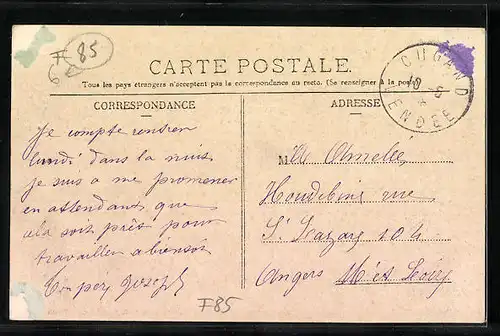 F 85
6
CARTE POSTALE
Tous les pays étrangers n'acceptent pas la correspondance au recto. (Se renseigner à la poste)
CORRESPONDANCE
ADRESSE
CUGAND
10 - 5
VENDÉE
Je compte rentrer
lundi dans la nuis
je suis a me promener
en attendant que
sois près pour
travailler a biensoir
Joseph
M
Houdebine rue
St Lazare 104
Angers M et Loire
F85